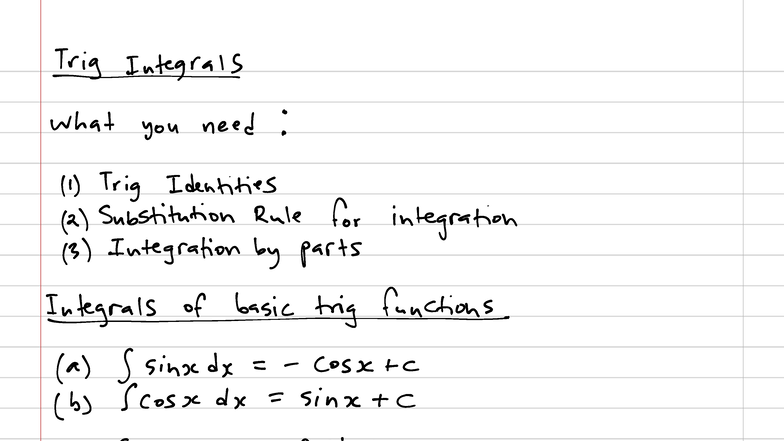 Trig Integrals
What you need :
(1) Trig Identities
(2) Substitution Rule for integration
(3) Integration by parts
Integrals of basic trig functions
(a) ∫ sinx dx = - cosx + c
(b) ∫ cosx dx = sinx + c